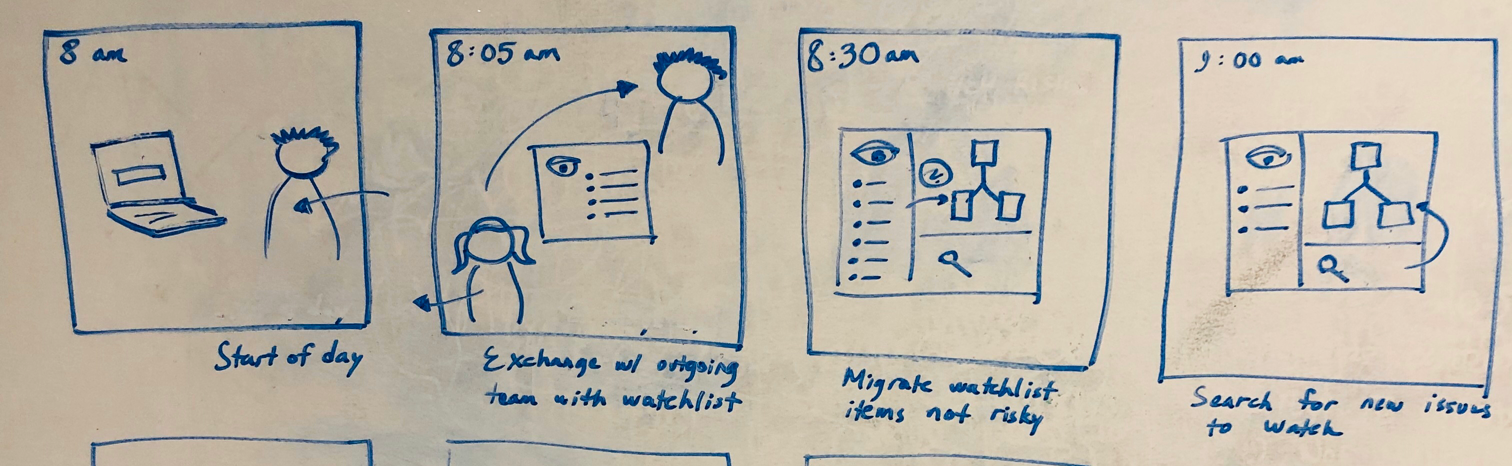 8 am
Start of day
8:05 am
Exchange w/ outgoing
team with watchlist
8:30 am
Migrate watchlist
items not risky
9:00 am
Search for new issues
to watch